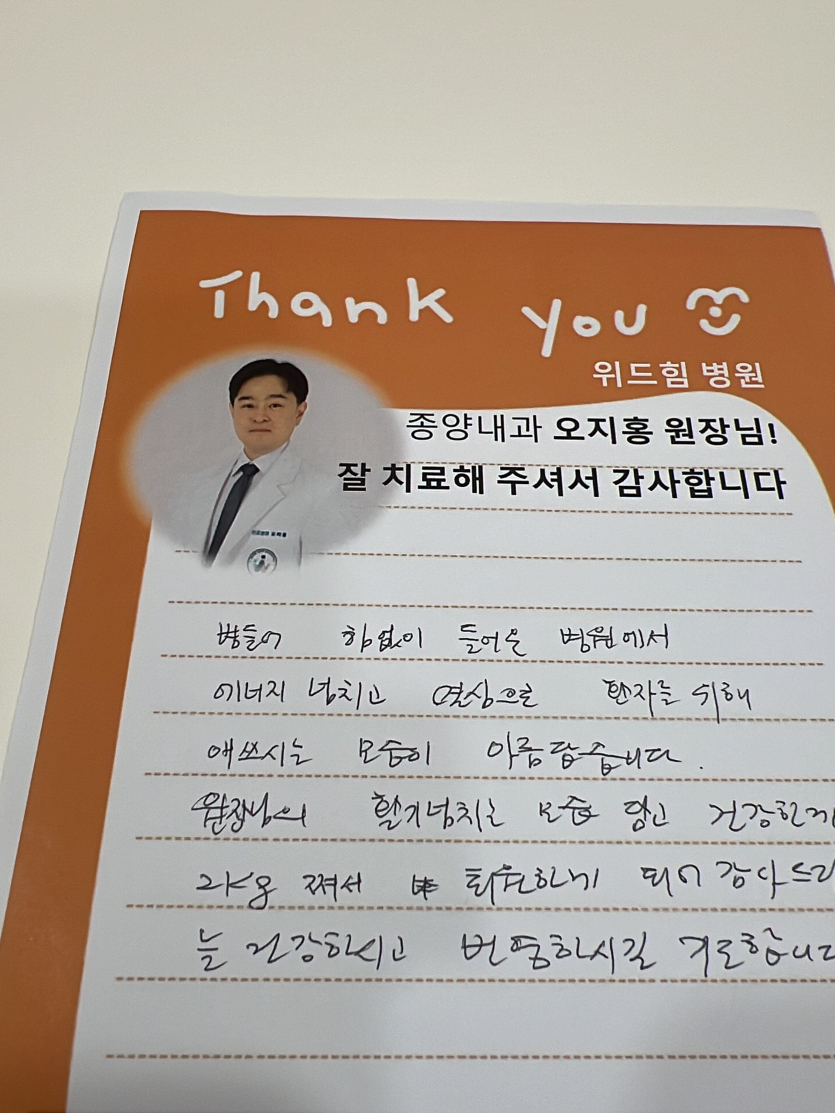 Thank you
위드힘 병원
종양내과 오지홍 원장님!
잘 치료해 주셔서 감사합니다
병들어 힘없이 들어온 병원에서
에너지 넘치고 열심으로 환자를 위해
애쓰시는 모습이 아름답습니다.
원장님의 활기넘치는 모습 닮고 건강한
쪄서 퇴원하게 되어 감사드리
늘 건강하시고 번영하시길 기도합니다